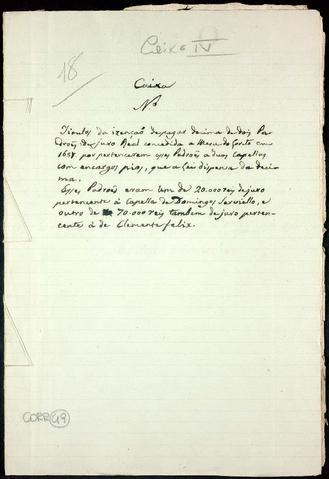 Caixa IV
18
Caixa
Nº
Titulos da izenção de pagar decima de dois Pa-
drões de juro Real concedida a Mesa do
1687, por pertencerem esses Padrões a duas capellas
com encargos pios, que a Lei dispensa da deci-
ma.
Esses Padrões eram um de 20.000 reis de juro
pertencente á Capella de Domingos e
outro de 70.000 reis tambem de juro perten-
cente á de Clemente Felix.
CORR 49